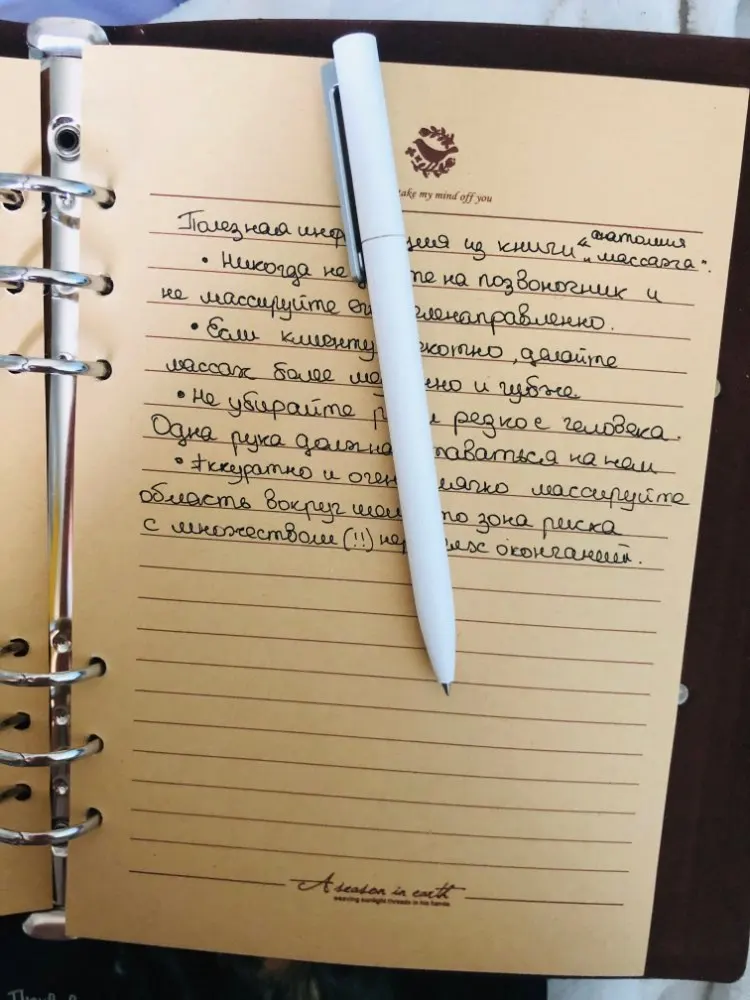 take my mind off you
Полезная инф ция из книги „Анатомия
массажа".
• Никогда не те на позвоночник и
не массируйте ег ленаправленно.
• Если клиенту екотно, делайте
массаж более ме нно и глубже
• Не убирайте р и резко с человека.
Одна рука должна таваться на нем
• Аккуратно и очен мягко массируйте
область вокруг шеи то зона риска
с множеством (!!) не ых окончаний.
A season in earth
weaving sunlight threads in his hands